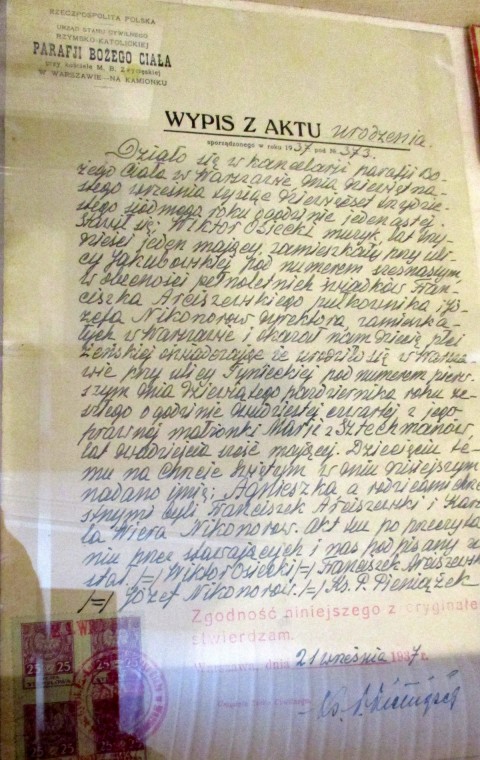 RZECZPOSPOLITA POLSKA
URZĄD STANU CYWILNEGO
RZYMSKO-KATOLICKIEJ
PARAFJI BOŻEGO CIAŁA
przy kościele M. B. Zwycięskiej
W WARSZAWIE—NA KAMIONKU
WYPIS Z AKTU urodzenia.
sporządzonego w roku 1937 pod № 373.
Działo się w kancelarji parafji Bo-
żego Ciała w Warszawie dnia dziewiętna-
stego września tysiąc dziewięćset trzydzie-
stego siódmego roku o godzinie jedenastej.
Stawił się, Wiktor Osiecki muzyk, lat trzy-
dzieści jeden mający, zamieszkały przy uli-
cy Jakubowskiej pod numerem szesnastym
w obecności pełnoletnich świadków Fran-
ciszka Arciszewskiego pułkownika i Jó-
zefa Nikonorow dyrektora, zamieszka-
łych w Warszawie i okazał nam dziecię płci
żeńskiej oświadczając że urodziło się w Warsza-
wie przy ulicy Tynieckiej pod numerem pierw-
szym dnia dziewiątego października roku ze-
szłego o godzinie dwudziestej czwartej z jego
prawnej małżonki Marji z Sztechmanów,
lat dwadzieścia sześć mającej. Dziecięciu te-
mu na Chrzcie Świętym w dniu dzisiejszym
nadano imię; Agnieszka a rodzicami chrze-
stnymi byli Franciszek Arciszewski i Karo-
la Wiera Nikonorow. Akt ten po przeczyta-
niu przez stawających i nas podpisany zo-
stał. /=/ Wiktor Osiecki /=/ Franciszek Arciszewski
/=/ Józef Nikonorow. /=/ Ks. P. Pieniążek
Zgodność niniejszego z oryginałem
stwierdzam.
Warszawa, dnia 21 września 1937 r.
Urzędnik Stanu Cywilnego
Ks. P. Pieniążek
25 G 25
25 G 25